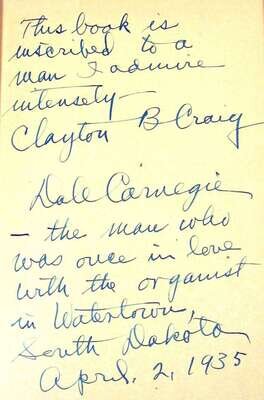 This book is
inscribed to a
man I admire
intensely—
Clayton B Craig
Dale Carnegie
— the man who
was once in love
with the organist
in Watertown,
South Dakota
April, 2, 1935